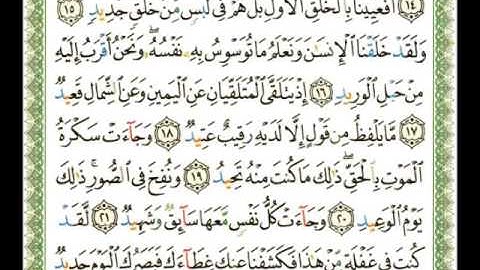 ١٤ أَفَعَيِينَا بِٱلْخَلْقِ ٱلْأَوَّلِ بَلْ هُمْ فِى لَبْسٍ مِّنْ خَلْقٍ جَدِيدٍ ١٥
وَلَقَدْ خَلَقْنَا ٱلْإِنسَٰنَ وَنَعْلَمُ مَا تُوَسْوِسُ بِهِۦ نَفْسُهُۥ ۖ وَنَحْنُ أَقْرَبُ إِلَيْهِ
مِنْ حَبْلِ ٱلْوَرِيدِ ١٦ إِذْ يَتَلَقَّى ٱلْمُتَلَقِّيَانِ عَنِ ٱلْيَمِينِ وَعَنِ ٱلشِّمَالِ قَعِيدٌ
١٧ مَّا يَلْفِظُ مِن قَوْلٍ إِلَّا لَدَيْهِ رَقِيبٌ عَتِيدٌ ١٨ وَجَآءَتْ سَكْرَةُ
ٱلْمَوْتِ بِٱلْحَقِّ ۖ ذَٰلِكَ مَا كُنتَ مِنْهُ تَحِيدُ ١٩ وَنُفِخَ فِى ٱلصُّورِ ۚ ذَٰلِكَ
يَوْمُ ٱلْوَعِيدِ ٢٠ وَجَآءَتْ كُلُّ نَفْسٍ مَّعَهَا سَآئِقٌ وَشَهِيدٌ ٢١ لَّقَدْ
كُنتَ فِى غَفْلَةٍ مِّنْ هَٰذَا فَكَشَفْنَا عَنكَ غِطَآءَكَ فَبَصَرُكَ ٱلْيَوْمَ حَدِيدٌ